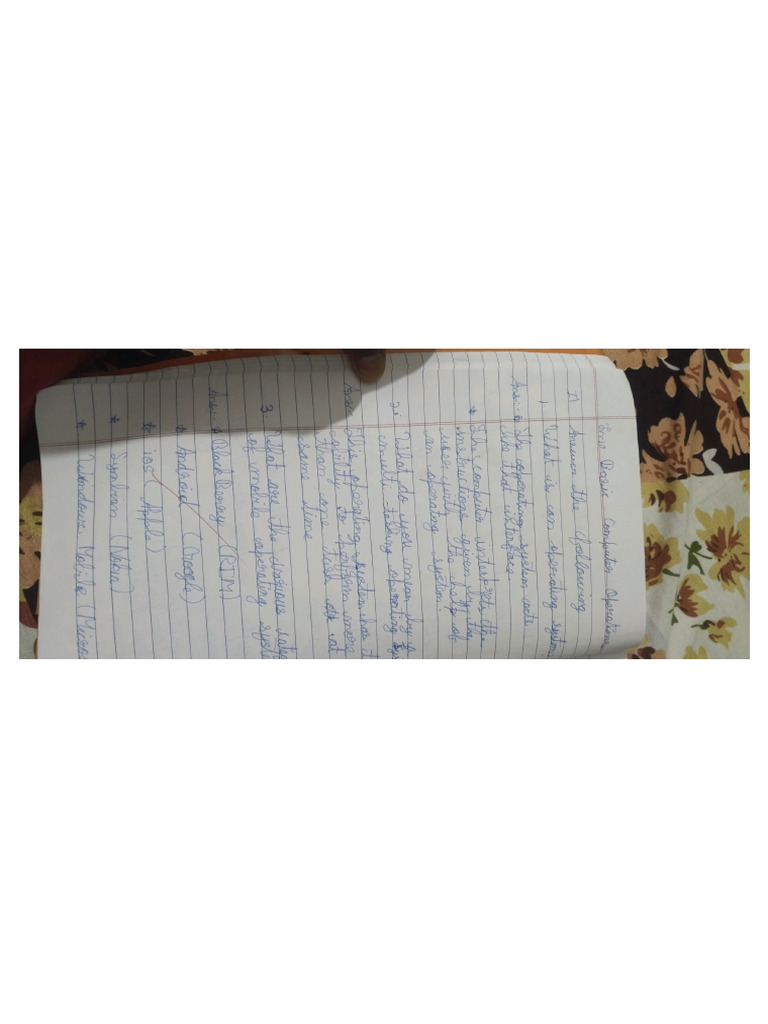 Computer Operations
I) Answer the following
1. What is an operating system
Ans: The operating system acts
the that interface
* The computer interacts the
instructions given by the
user with the help of
an operating system.
2. What do you mean by a
multi tasking operating
Ans: This operating system has
ability to perform more
than one task at
same time
3. What are the various
of mobile operating
Ans: * BlackBerry (RIM)
* Android (Google)
* iOS (Apple)
* Symbian (Nokia)
* Windows Mobile